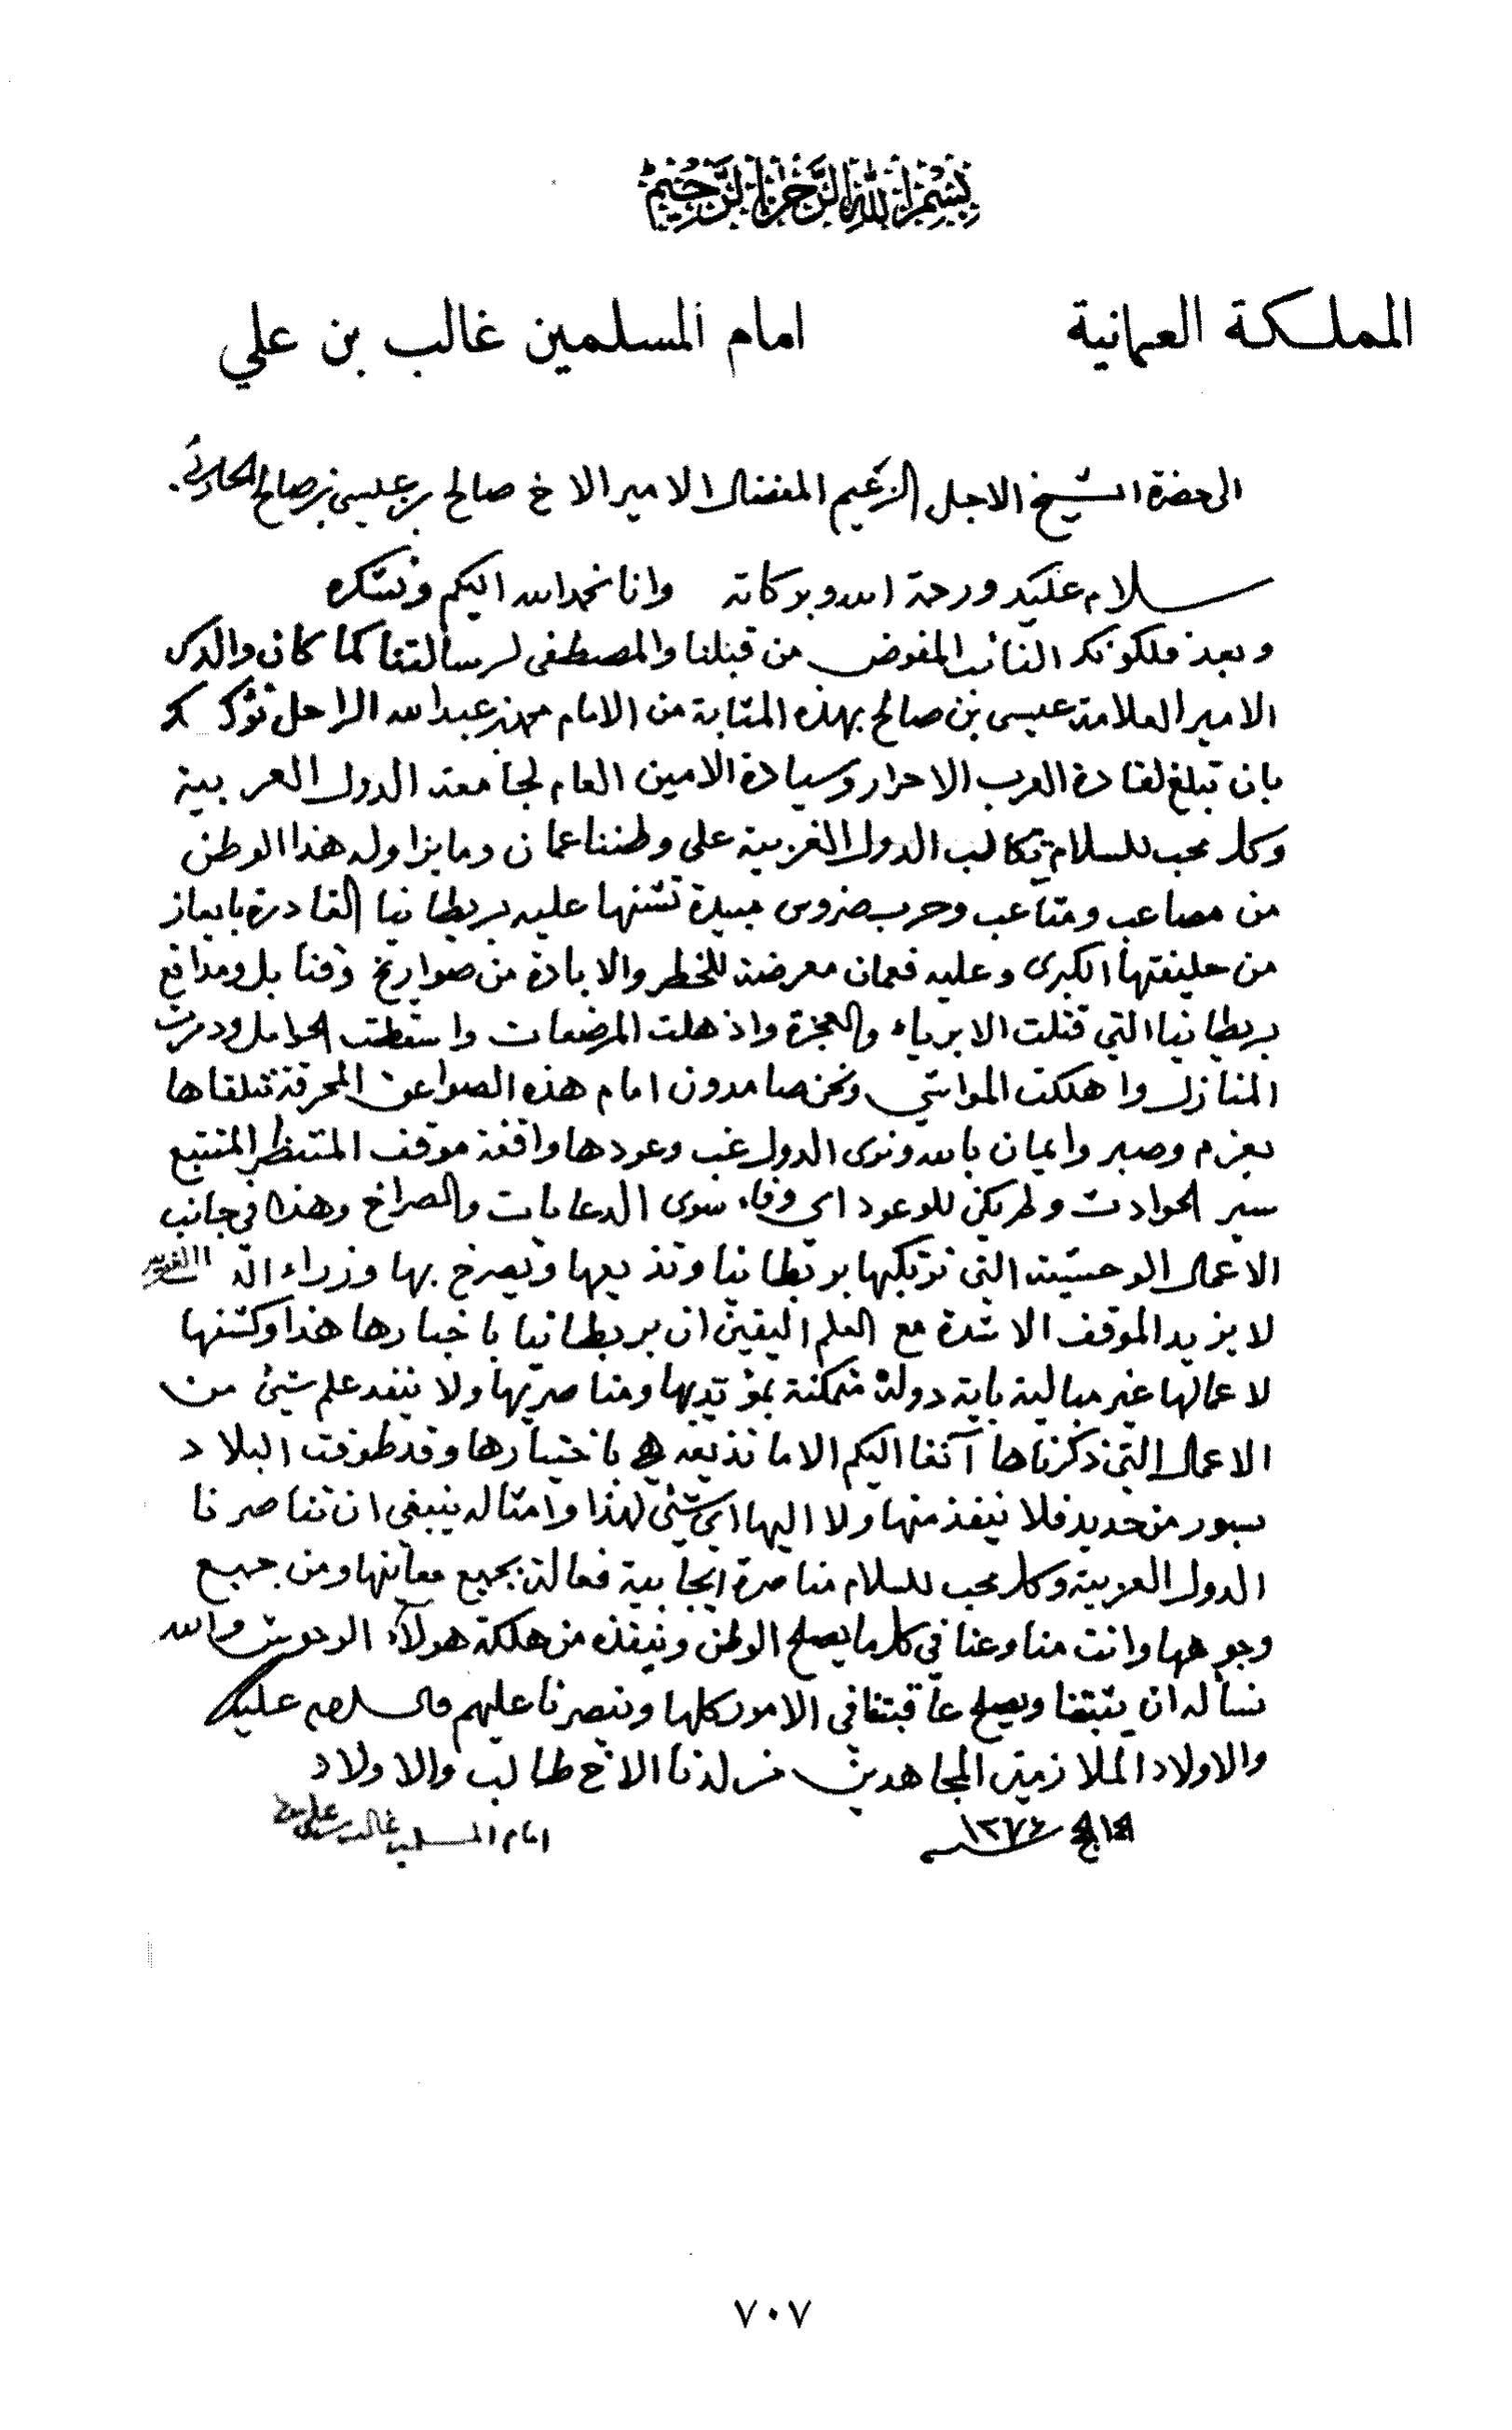 بسم الله الرحمن الرحيم
المملكة العمانية
امام المسلمين غالب بن علي
الى حضرة الشيخ الاجل الزعيم المفضال الامير الاخ صالح بن عيسى بن صالح الحارثي.
سلام عليكم ورحمة الله وبركاته وانا نحمد الله اليكم ونشكره
وبعد فلكونكم النائب المفوض من قبلنا والمصطفى لرسالتنا كما كان والدكم
الامير العلامة عيسى بن صالح بهذه المثابة من الامام محمد بن عبدالله الراحل نؤكد لكم
بان تبلغ لقادة العرب الاحرار وسيادة الامين العام لجامعة الدول العربية
وكل محب للسلام تكالب الدول الغربية على وطننا عمان وما يزاوله هذا الوطن
من مصاعب ومتاعب وحرب ضروس مبيدة تشنها عليه بريطانيا القادرة بايعاز
من حليفتها الكبرى وعليه فعمان معرضة للخطر والابادة من صواريخ وقنابل ومدافع
بريطانيا التي قتلت الابرياء والعجزة واذهلت المرضعات واسقطت الحوامل ودمرت
المنازل واهلكت المواشي ونحن صامدون امام هذه الصواعق المحرقة نتلقاها
بعزم وصبر وايمان بالله ونرى الدول غب وعودها واقفة موقف المنتظر المتتبع
سير الحوادث ولم يكن للوعود اي وفاء سوى الدعايات والصراخ وهذا في جانب
الاعمال الوحشية التي ترتكبها بريطانيا وتذيعها ويصرخ بها وزراء
لا يزيد الموقف الا شدة مع العلم اليقين ان بريطانيا باخبارها هذا وكشفها
لاعمالها غير مبالية باية دولة ممكنة بمؤتديها ومناصريها ولا ينفد علم شئ من
الاعمال التي ذكرناها آنفا اليكم الا ما تذيعه هي باختيارها وقد طوقت البلاد
بسور من حديد فلا ينفذ منها ولا اليها اي شئ لهذا وامثاله ينبغي ان تناصرنا
الدول العربية وكل محب للسلام مناصرة ايجابية فعالة بجميع معانيها ومن جميع
وجوهها وانت منا وعنا في كل ما يصلح الوطن وينقذه من هلكة هولآء الوحوش والله
نسأله ان يثبتنا ويصلح عاقبتنا في الامور كلها وينصرنا عليهم والسلام عليك
والاولاد الملازمين المجاهدين من لدنا الاخ طالب والاولاد
١٣٧٤
امام المسلمين غالب بن علي
٧٠٧